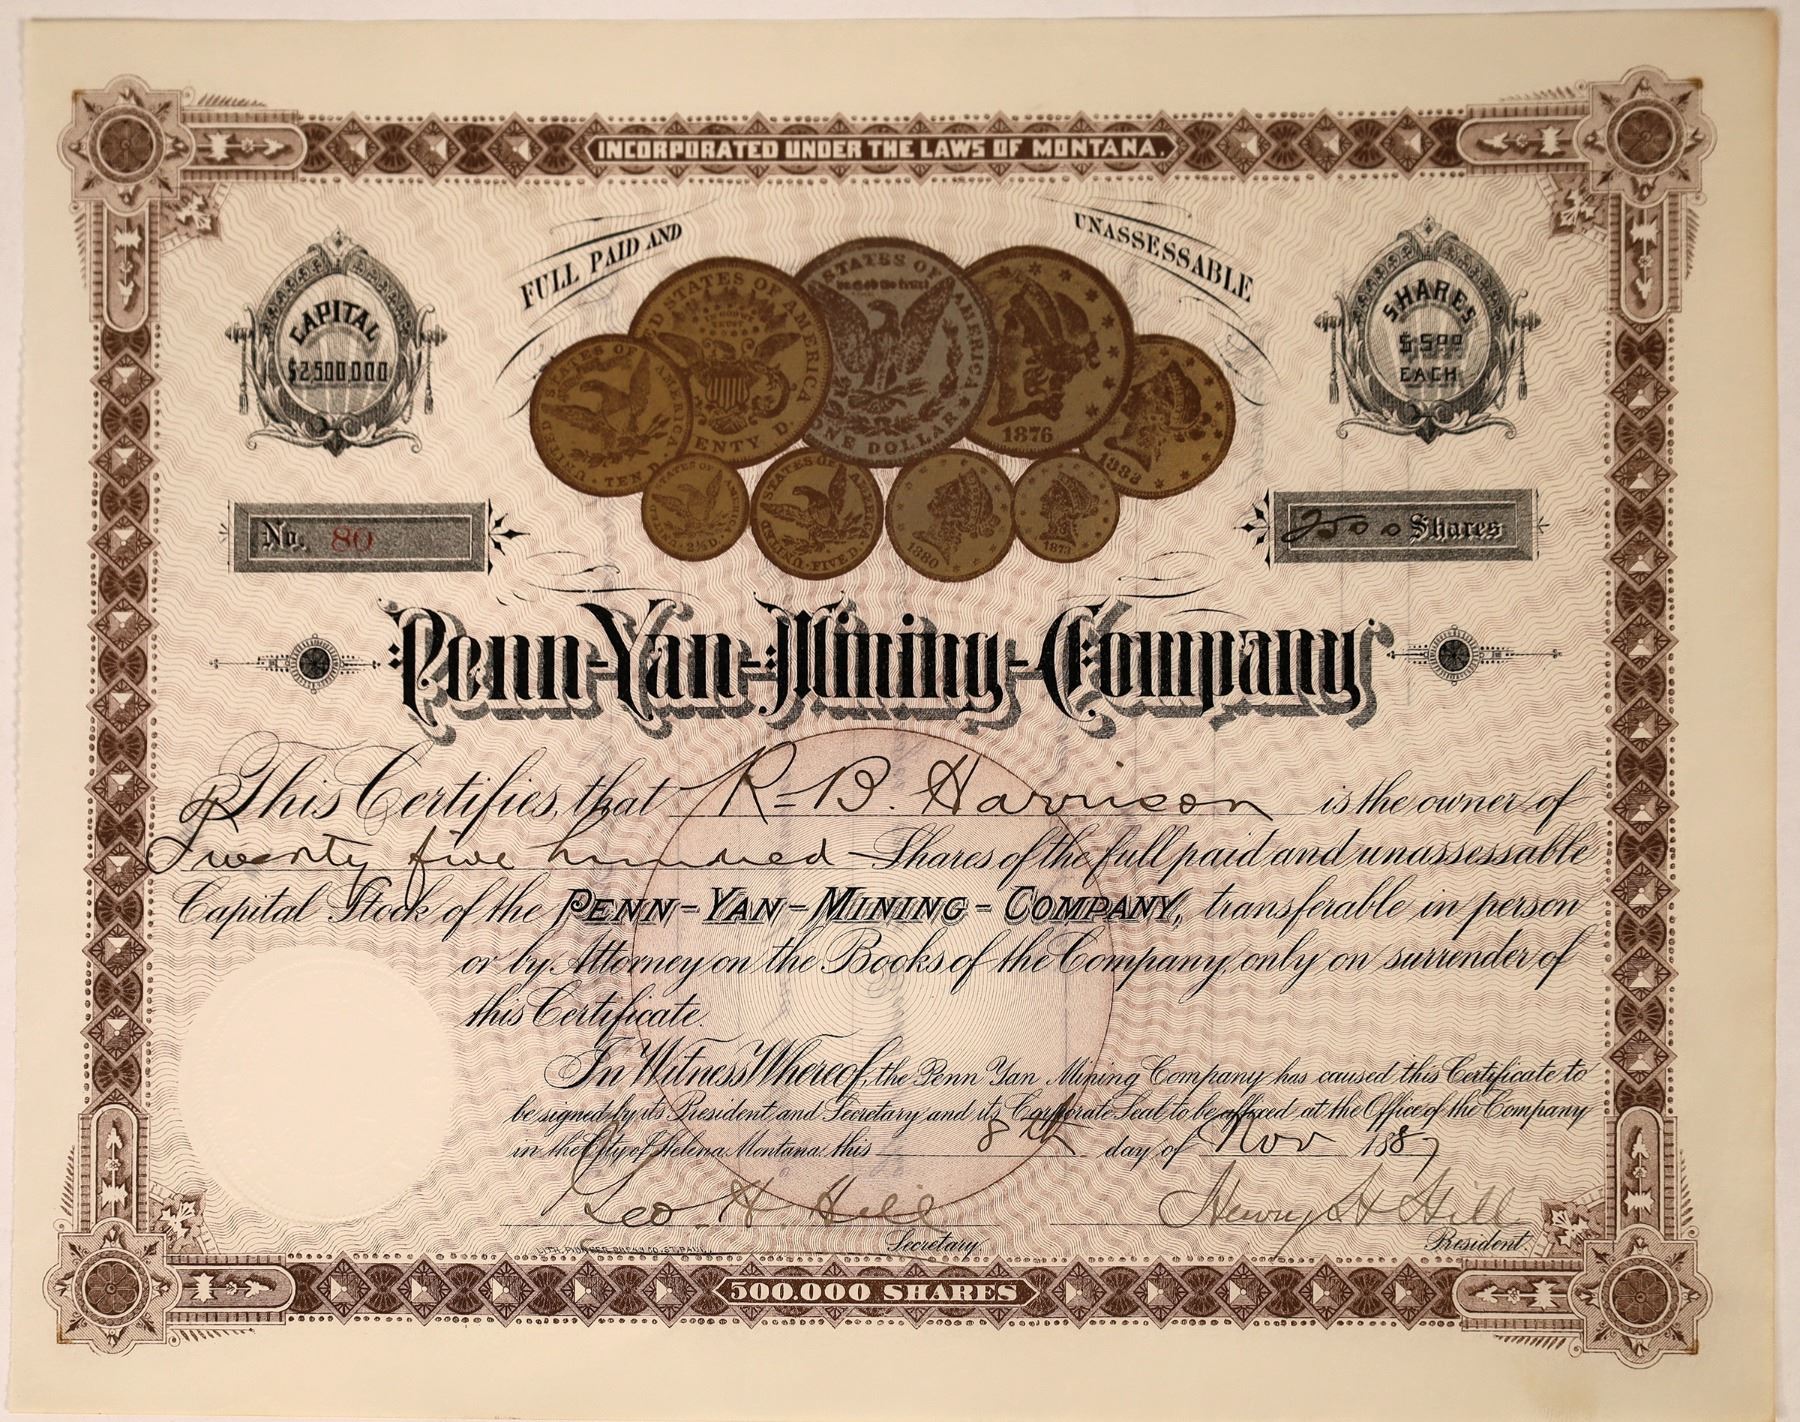 INCORPORATED UNDER THE LAWS OF MONTANA.
FULL PAID AND UNASSESSABLE
CAPITAL
$2,500,000
SHARES
$5.00
EACH
STATES OF AMERICA
ONE DOLLAR
D STATES OF AMERICA
ENTY D.
1876
UNITED STATES OF AMERICA
TEN D.
1882
STATES OF AMERICA
2½ D.
UNITED STATES OF AMERICA
FIVE D.
1880
1873
No. 80
2500 Shares
Penn-Yan-Mining-Company
This Certifies, that R=B. Harrison is the owner of
Twenty five hundred Shares of the full paid and unassessable
Capital Stock of the PENN-YAN-MINING-COMPANY, transferable in person
or by Attorney on the Books of the Company, only on surrender of
this Certificate.
In Witness Whereof, the Penn Yan Mining Company has caused this Certificate to
be signed by its President and Secretary and its Corporate Seal to be affixed at the Office of the Company
in the City of Helena, Montana, this 8th day of Nov 1887
Geo. H. Hill Henry H Hill
Secretary President
LITH. PIONEER PRESS CO. ST. PAUL
500.000 SHARES